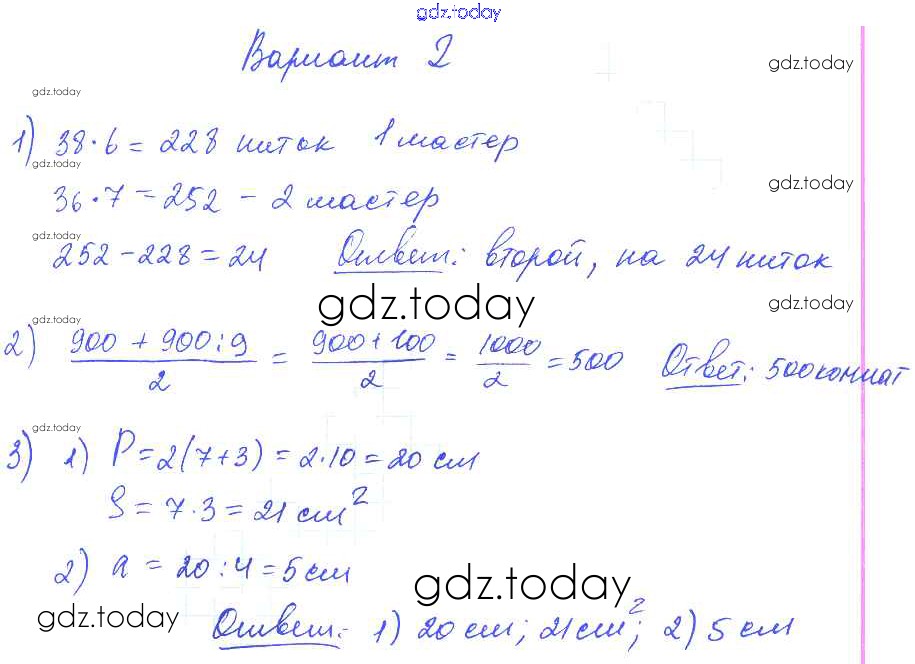 gdz.today
Вариант 2
gdz.today
gdz.today
1) 38·6 = 228 ниток 1 мастер
gdz.today
36·7 = 252 - 2 мастер
gdz.today
gdz.today
252 - 228 = 24 Ответ: второй, на 24 ниток
gdz.today
gdz.today
gdz.today
2) (900 + 900:9)/2 = (900 + 100)/2 = 1000/2 = 500 Ответ: 500 комнат
gdz.today
3) 1) P = 2(7+3) = 2·10 = 20 см
S = 7·3 = 21 см²
2) a = 20:4 = 5 см
gdz.today
gdz.today
Ответ: 1) 20 см; 21 см²; 2) 5 см